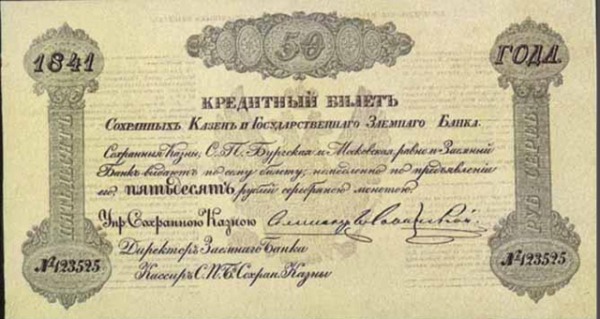 1841 50 ГОДА.
КРЕДИТНЫЙ БИЛЕТЪ
Сохранныхъ Казенъ и Государственнаго Заемнаго Банка.
Сохранныя Казны, С. П. Бургская и Московская, равно и Заемный
Банкъ выдаютъ по сему билету, немедленно по предъявленіи
его, ПЯТЬДЕСЯТЪ рублей серебряною монетою.
Упр. Сохранною Казною
Директоръ Заемнаго Банка
Кассиръ С. П. Б. Сохран. Казны
ПЯТЬДЕСЯТЪ
РУБ. СЕРЕБР.
№ 123525 № 123525